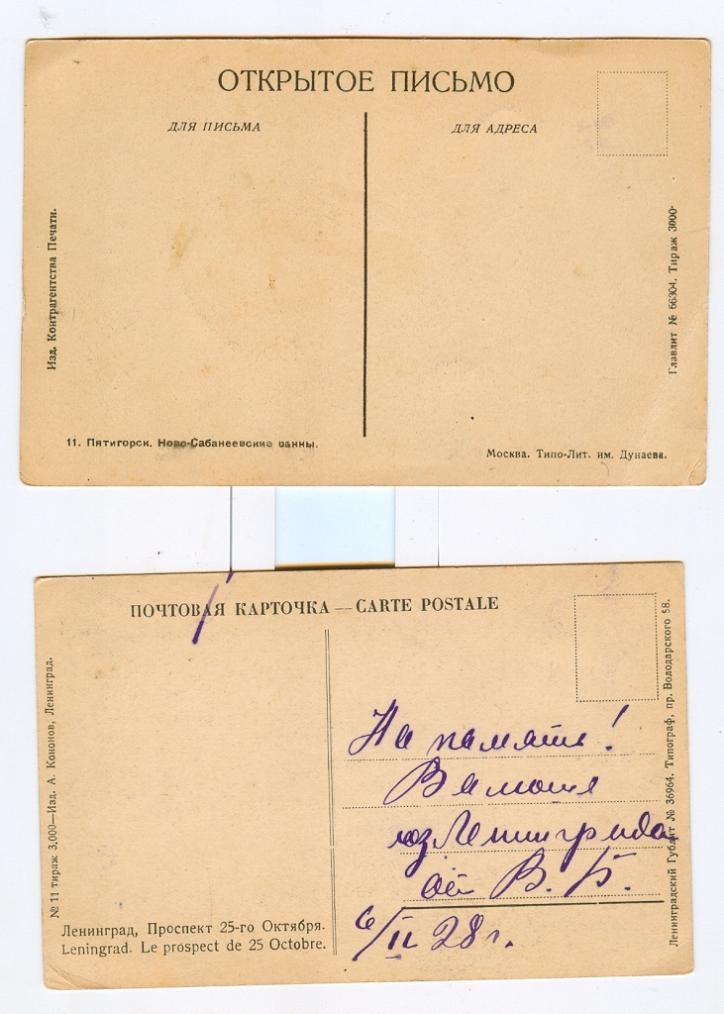 ОТКРЫТОЕ ПИСЬМО
ДЛЯ ПИСЬМА
ДЛЯ АДРЕСА
Изд. Контрагентства Печати.
Главлит № 66304. Тираж 3000
11. Пятигорск. Ново-Сабанеевские ванны.
Москва. Типо-Лит. им. Дунаева.
ПОЧТОВАЯ КАРТОЧКА — CARTE POSTALE
№ 11 тираж 3,000—Изд. А. Кононов, Ленинград.
Ленинградский Гублит № 36964. Типограф, пр. Володарского 58.
На память!
из Ленинграда
от В. Б.
6/II 28 г.
Ленинград, Проспект 25-го Октября.
Leningrad. Le prospect de 25 Octobre.